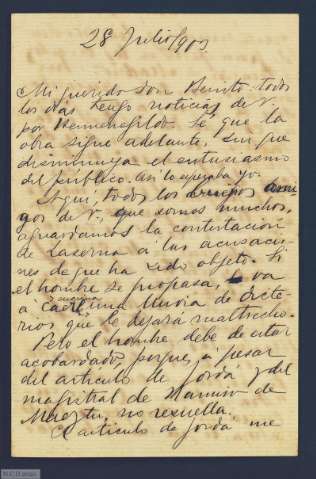 28 Julio/903
Mi querido Don Benito: todos
los dias tengo noticias de V.
por Hermenegildo. Sé que la
obra sigue adelante, sin que
disminuya el entusiasmo
del público. Asi lo esperaba yo.
Aqui, todos los amigos ami-
gos de V., que somos muchos,
aguardamos la contestación
de Laserna a las acusacio-
nes de que ha sido objeto. Si
el hombre se propasa, va
a caer le una lluvia de dicte-
rios que le dejará maltrecho.
Pero el hombre debe de estar
acobardado, porque, á pesar
del articulo de Jordá y del
magistral de Ramiro de
Maeztu, no resuella.
El articulo de Jordá me